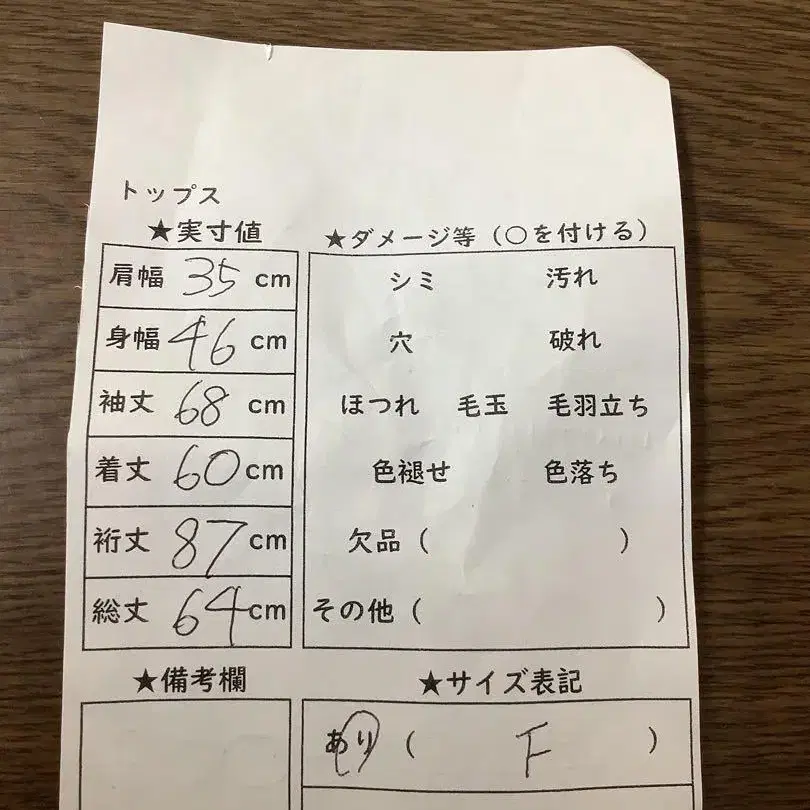 トップス
★実寸値
肩幅 35 cm
身幅 46 cm
袖丈 68 cm
着丈 60 cm
裄丈 87 cm
総丈 64 cm
★ダメージ等（○を付ける）
シミ 汚れ
穴 破れ
ほつれ 毛玉 毛羽立ち
色褪せ 色落ち
欠品（ ）
その他（ ）
★備考欄
★サイズ表記
あり（ F ）